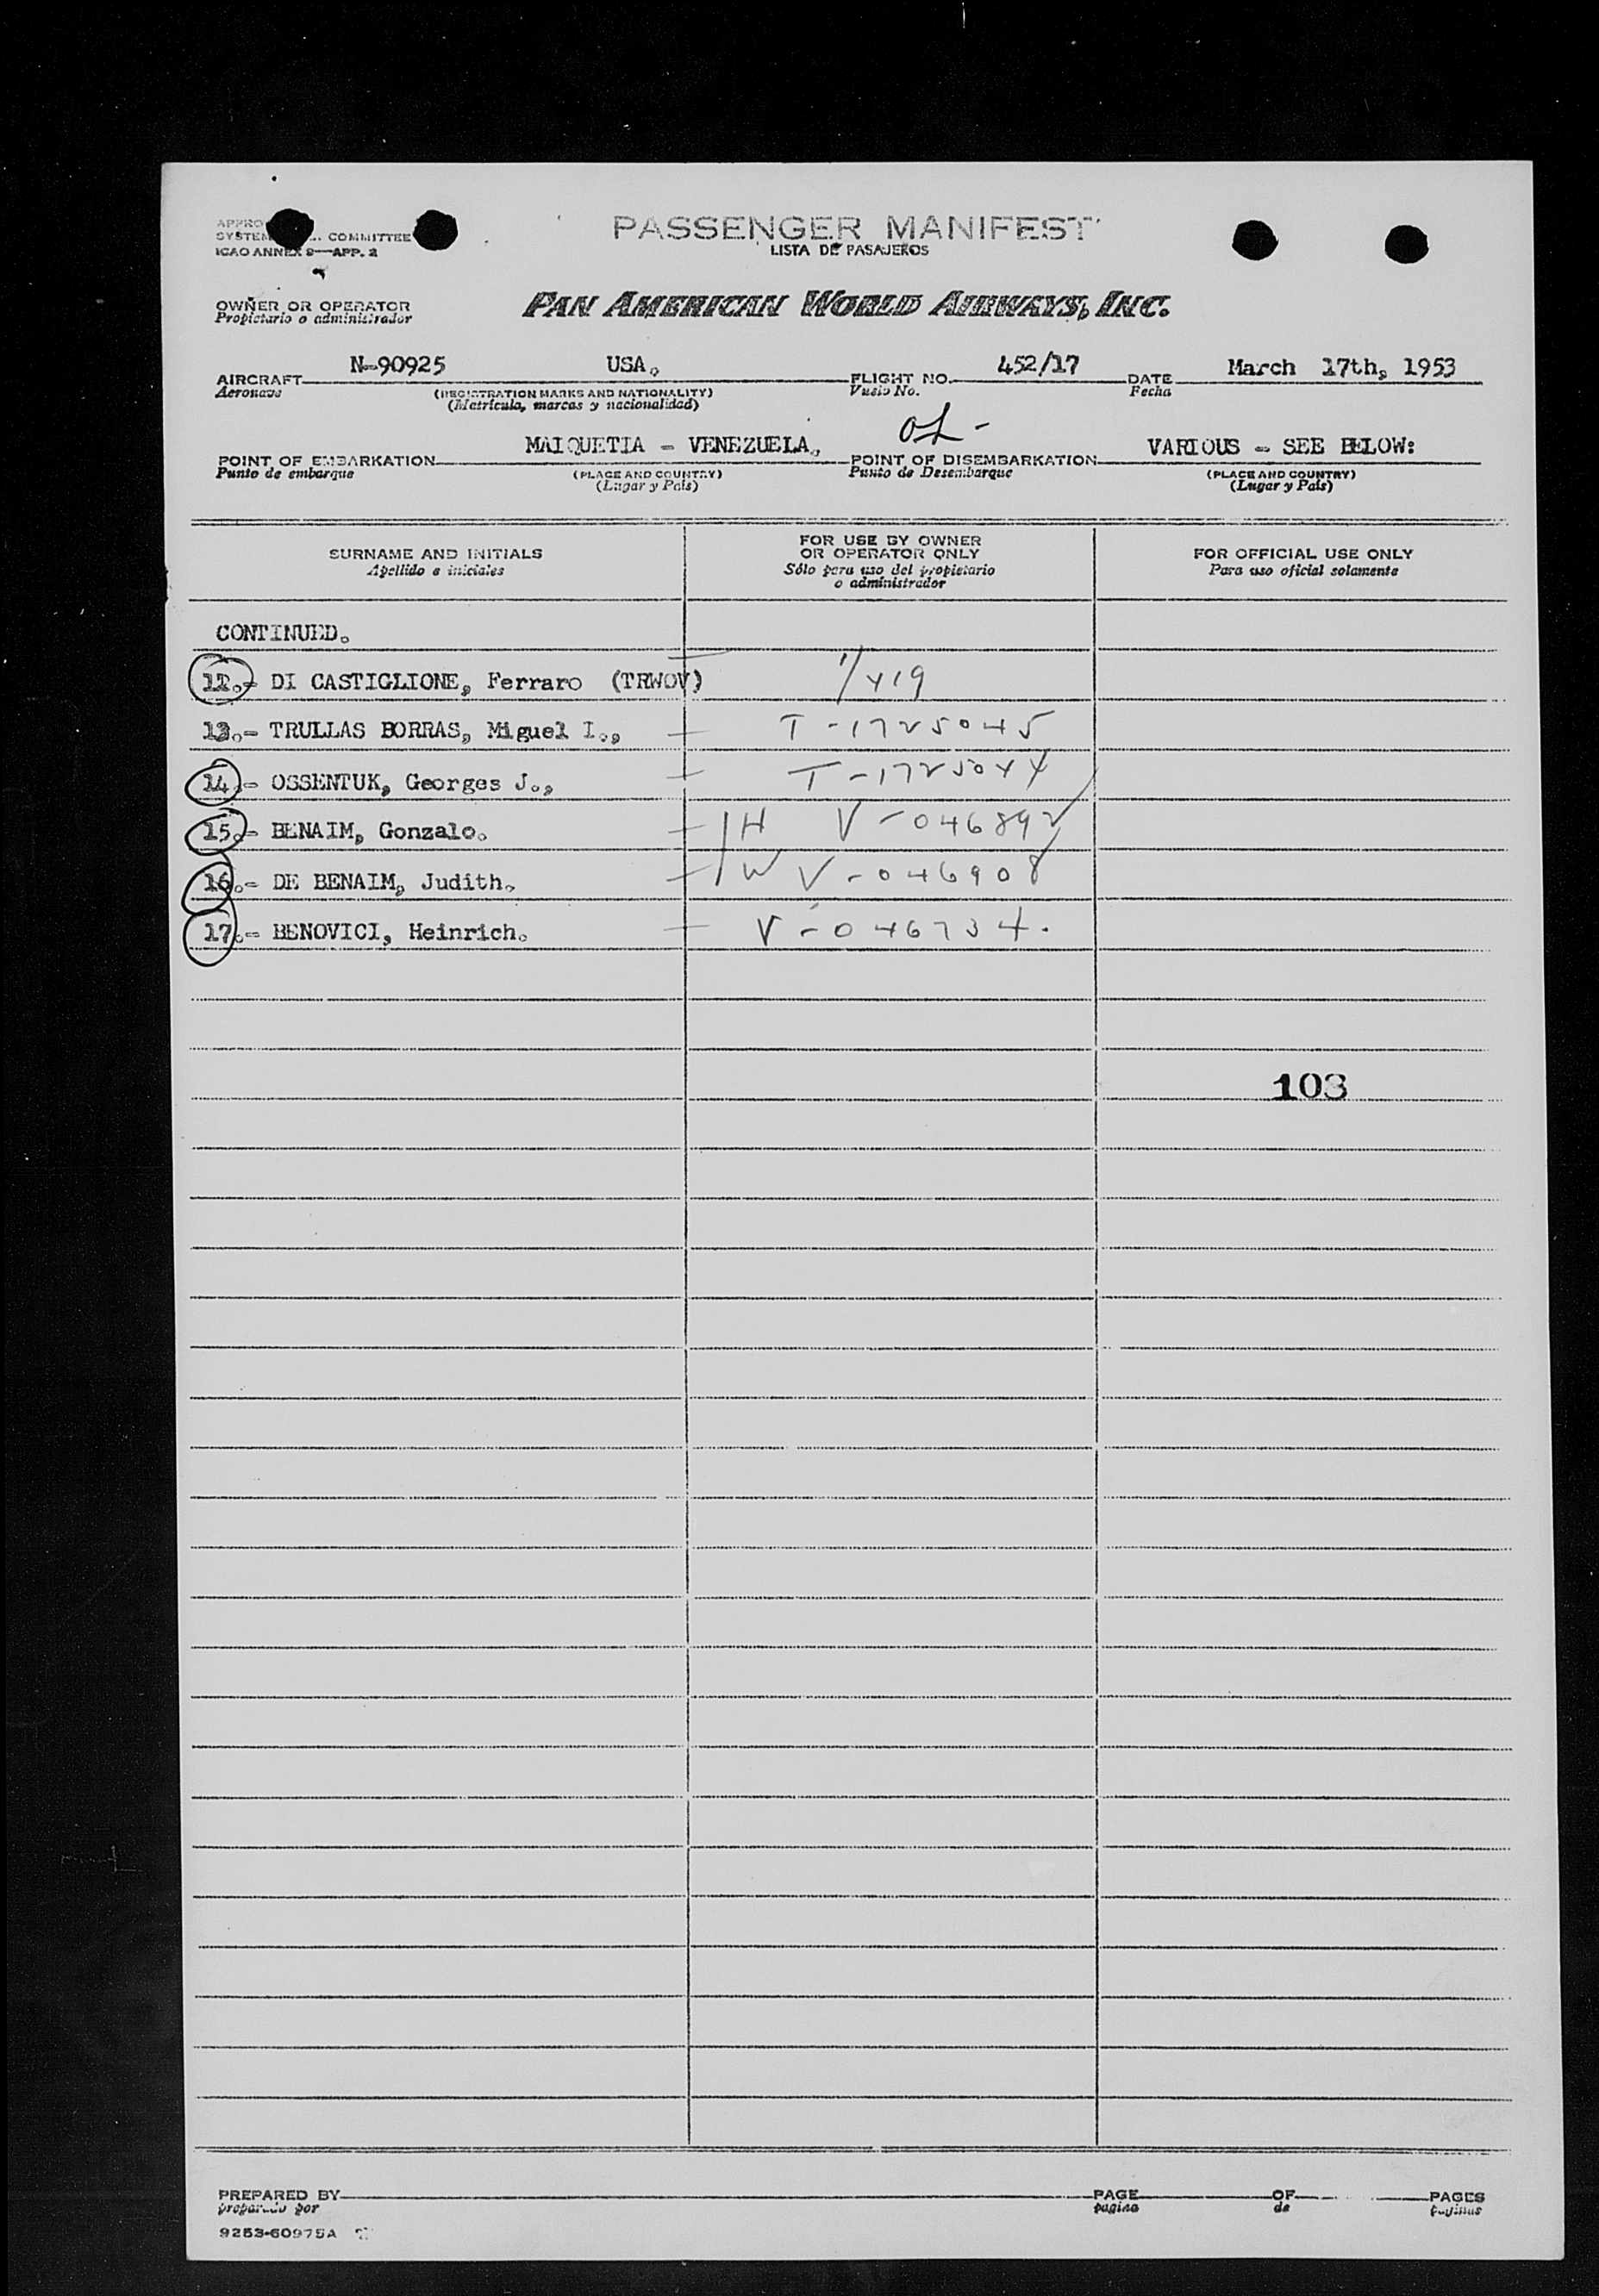 PASSENGER MANIFEST
LISTA DE PASAJEROS
SYSTEM COMMITTEE
ICAO ANNEX 9—APP. 2
OWNER OR OPERATOR
Propietario o administrador
PAN AMERICAN WORLD AIRWAYS, INC.
AIRCRAFT N-90925 USA. FLIGHT NO. 452/17 DATE March 17th, 1953
Aeronave (REGISTRATION MARKS AND NATIONALITY) Vuelo No. Fecha
(Matricula, marcas y nacionalidad)
POINT OF EMBARKATION MAIQUETIA - VENEZUELA. POINT OF DISEMBARKATION VARIOUS - SEE BELOW:
Punto de embarque (PLACE AND COUNTRY) Punto de Desembarque (PLACE AND COUNTRY)
(Lugar y País) (Lugar y País)
SURNAME AND INITIALS FOR USE BY OWNER OR OPERATOR ONLY FOR OFFICIAL USE ONLY
Apellido e iniciales Sólo para uso del propietario o administrador Para uso oficial solamente
CONTINUED.
12.- DI CASTIGLIONE, Ferraro (TRWOV) 1/419
13.- TRULLAS BORRAS, Miguel I., T-1725045
14.- OSSENTUK, Georges J., T-1725044
15.- BENAIM, Gonzalo. H V-046892
16.- DE BENAIM, Judith. W V-046908
17.- BENOVICI, Heinrich. V-046734.
103
PREPARED BY PAGE OF PAGES
preparado por pagina de paginas
9253-60975A